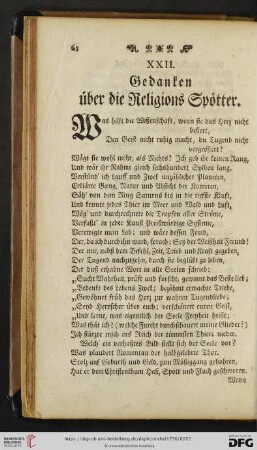 62
XXII.
Gedanken
über die Religions Spötter.
Was hilft die Wissenschaft, wenn sie das Herz nicht
bessert,
Den Geist nicht ruhig macht, die Tugend nicht
vergrössert?
Wäg' sie wohl mehr, als Nichts? Ich geb ihr keinen Rang,
Und wär ihr Nahme gleich sechshundert Sylben lang.
Verstünd ich hauf und Zweck unzählicher Planeten,
Erklärte Gang, Natur und Absicht der Kometen,
Säh' von dem Ring Saturns bis in die tiefste Kluft,
Und kennte jedes Thier im Meer und Wald und Luft,
Wög' und durchrechnete die Tropfen aller Ströme,
Verfaßt' in jeder Kunst Preißwürdige Systeme,
Verewigte mein Lob: und wäre dessen Feind,
Der, daich durch ihn ward, sprach: Sey der Weißheit Freund!
Der mir, nebst dem Gefühl, Zeit, Trieb und Kraft gegeben,
Der Tugend nachzugehn, durch sie beglückt zu leben,
Der diß erhabne Wort in alle Seelen schrieb:
„Sucht Wahrheit, prüft und forscht, gewinnt das Beste lieb;
„Bedenkt des Lebens Zweck; bezähmt erwachte Triebe,
„Gewöhnet früh das Herz zur wahren Tugendliebe;
„Seyd Herrscher über euch; verscheuert euren Geist,
„Und lernt, was eigentlich der Seele Freyheit heist;
Was thät ich? (welche Furcht durchströmet meine Glieder?)
Ich stürzte mich ins Reich der dümmsten Thiere nieder.
Welch ein verhaßtes Bild stellt sich der Seele vor?
Was plaudert Momentan der halbgelehrte Thor.
Stolz aus Geburth und Geld, zum Müßiggang gebohren,
Hat er dem Christenthum Haß, Spott und Fluch geschworen.
Wenn
DFG